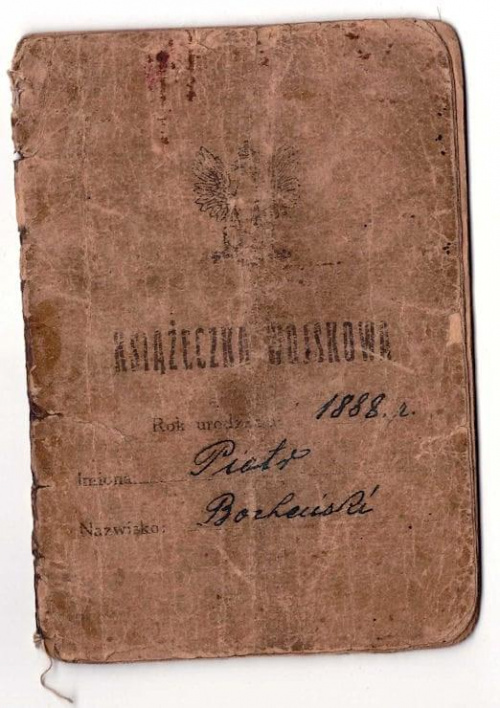 KSIĄŻECZKA WOJSKOWA
Rok urodzenia: 1888. r.
Imiona: Piotr
Nazwisko: Bocheński